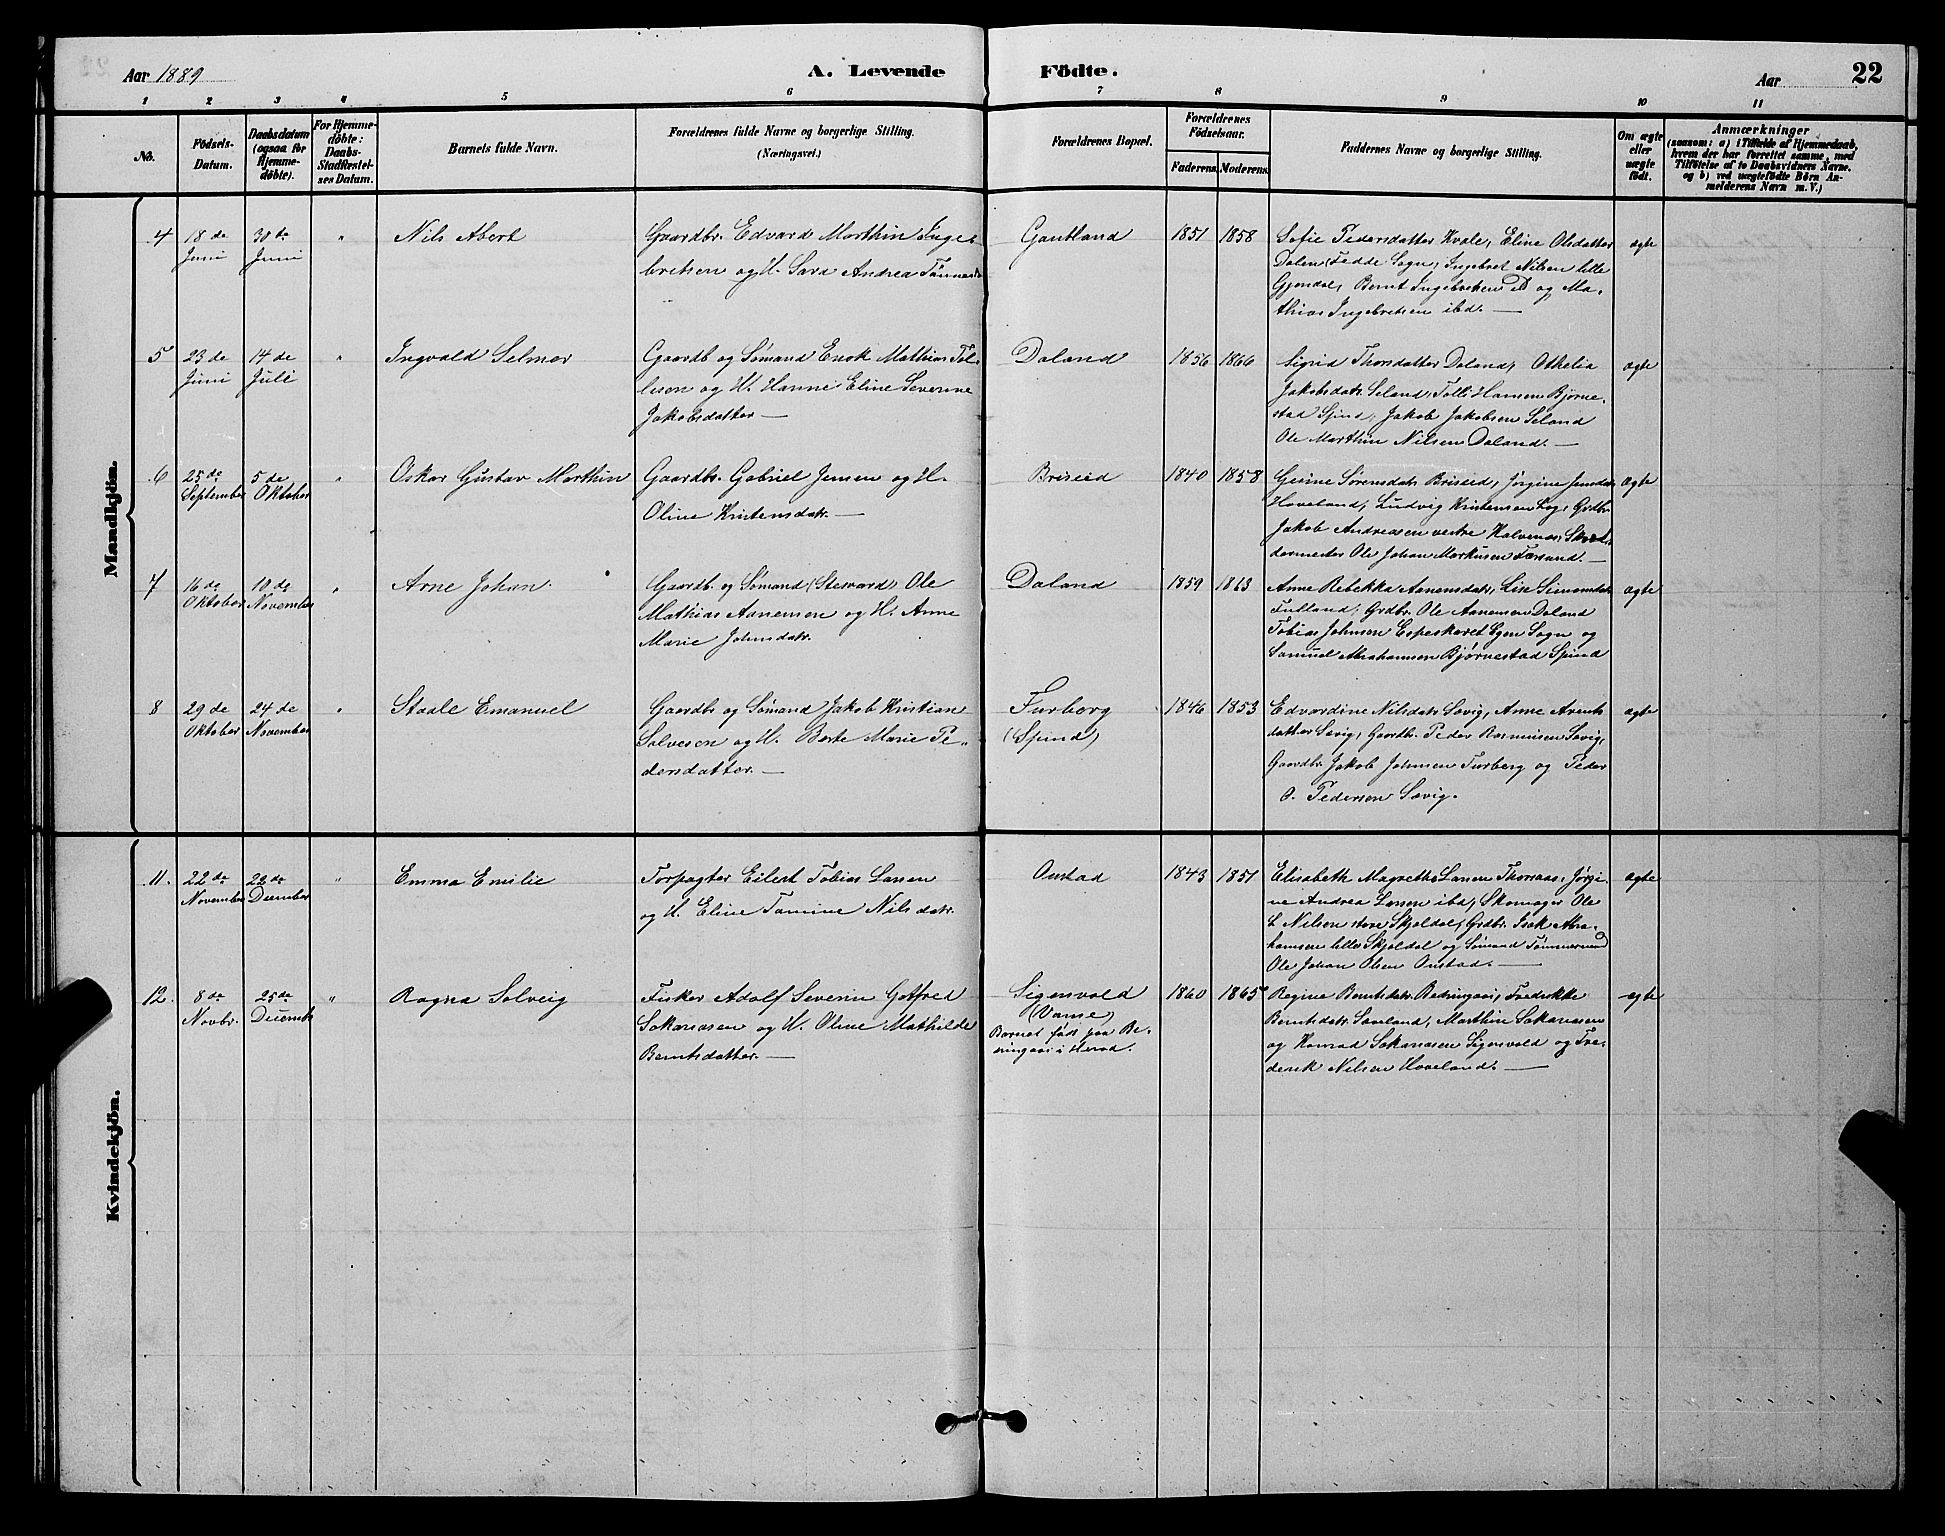 Aar 1889
A. Levende
Födte.
Aar
22
1 2 3 4 5 6 7 8 9 10 11
No.
Födsels-
Datum.
Daabsdatum
(ogsaa for
Hjemme-
döbte).
For Hjemme-
döbte:
Daabs-
Stadfæstel-
ses Datum.
Barnets fulde Navn.
Forældrenes fulde Navne og borgerlige Stilling.
(Næringsvei.)
Forældrenes Bopæl.
Forældrenes
Födselsaar.
Faderens. Moderens.
Faddernes Navne og borgerlige Stilling.
Om ægte
eller
uægte
födt.
Anmærkninger
(saasom: a) i Tilfælde af Hjemmedaab,
hvem der har forrettet samme, med
Tilföielse af to Daabsvidners Navne,
og b) ved uægtefödte Börn An-
melderens Navn m. V.)
Mandkjön.
4
18 de
Juni
30 te
Juni
"
Nils Abert
Gaardbr. Edvard Marthin Inge-
bretsen og H. Sara Andrea Tønnesdr
Gautland
1851 1858
Sofie Pedersdatter Kvale, Eline Olsdatter
Dalen (Fedde Sogn, Ingebret Nilsen lille
Gjendal, Bernt Ingebretsen ibd og Ma-
thias Ingebretsen ibd.
ægte
5
23 de
Juni
14 de
Juli
"
Ingvald Selmer
Gaardb og Sømand Enok Mathias Tol-
lisen og H. Hanne Eline Severine
Jakobsdatter
Daland
1856 1866
Sigrid Thorsdatter Daland, Othelia
Jakobsdatr. Seland, Tolli Hansen Bjørne-
stad Spind, Jakob Jakobsen Seland
Ole Marthin Nilsen Daland.
ægte
6
25 de
September
5 de
Oktober
"
Oskar Gustav Marthin
Gaardbr. Gabriel Jensen og H.
Oline Kristensdatr.
Briseid
1840 1858
Gurine Sørensdatr Briseid, Jørgine Jensdatr
Hoveland, Ludvig Kristensen Log, Grdbr.
Jakob Andreasen vestre Kalvenes, Skræd-
dermester Ole Johan Markusen Tarsand.
ægte
7
16 de
Oktober
10 de
November
"
Arne Johan
Gaardb. og Sømand (Steward) Ole
Mathias Aanensen og H. Anne
Marie Johnsdatr.
Daland
1859 1863
Anne Rebekka Aanensdatr, Lise Simonsdatr
Futland, Grdbr. Ole Aanensen Daland
Tobias Johnsen Espeskaret Egen Sogn og
Samuel Abrahamsen Bjørnestad Spind
ægte
8
29 de
Oktober
24 de
November
"
Staale Emanuel
Gaardbr og Sømand Jakob Kristian
Salvesen og H. Berte Marie Pe-
dersdatter.
Furberg
(Spind)
1846 1853
Edvardine Nilsdatr Sævig, Anne Arents-
datter Sævig, Gaardbr. Peder Rasmussen Sævig,
Gaardbr Jakob Johnsen Furberg og Peder
O. Pedersen Sævig.
ægte
Kvindekjön.
11.
22 de
November
22 de
December
"
Emma Emilie
Forpagter Eilert Tobias Larsen
og H. Eline Tomine Nilsdatr.
Onstad
1843 1851
Elisabeth Magrethe Larsen Thorsaas, Jørgi-
ne Andrea Larsen ibd, Skomager Ole
L Nilsen store Skjoldal, Grdbr. Isak Abra-
hamsen lille Skjoldal og Sømand Tømmermand
Ole Johan Olsen Onstad.
ægte
12.
8 de
Novbr.
25 de
Decemb
"
Ragna Solveig
Fisker Adolf Severin Gotfred
Sakariasen og H. Oline Mathilde
Berntsdatter.
Sigersvold
(Vanse)
Barnet født paa Re-
dingaas i Herad.
1860 1865
Regine Berntsdatr. Redingaas, Fredrikke
Berntsdatr. Sæveland, Marthin Sakariasen
og Konrad Sakariasen Sigersvold og Fre-
derik Nilsen Hoveland.
ægte